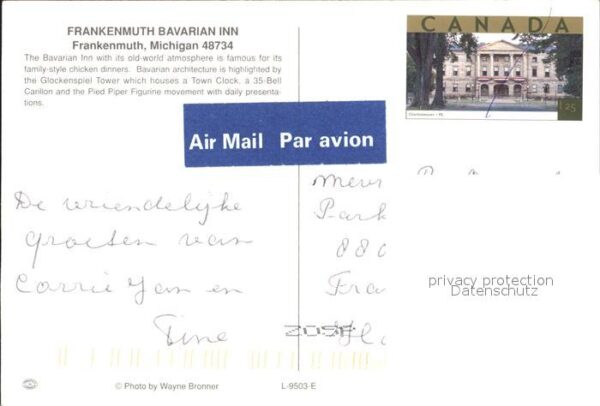 FRANKENMUTH BAVARIAN INN
Frankenmuth, Michigan 48734
The Bavarian Inn with its old-world atmosphere is famous for its
family-style chicken dinners. Bavarian architecture is highlighted by
the Glockenspiel Tower which houses a Town Clock, a 35-Bell
Carillon and the Pied Piper Figurine movement with daily presenta-
tions.
CANADA
1.25
Air Mail Par avion
De vriendelijke
groeten van
Carrie Jan en
Tine
Park
880
Fra
privacy protection
Datenschutz
© Photo by Wayne Bronner
L-9503-E